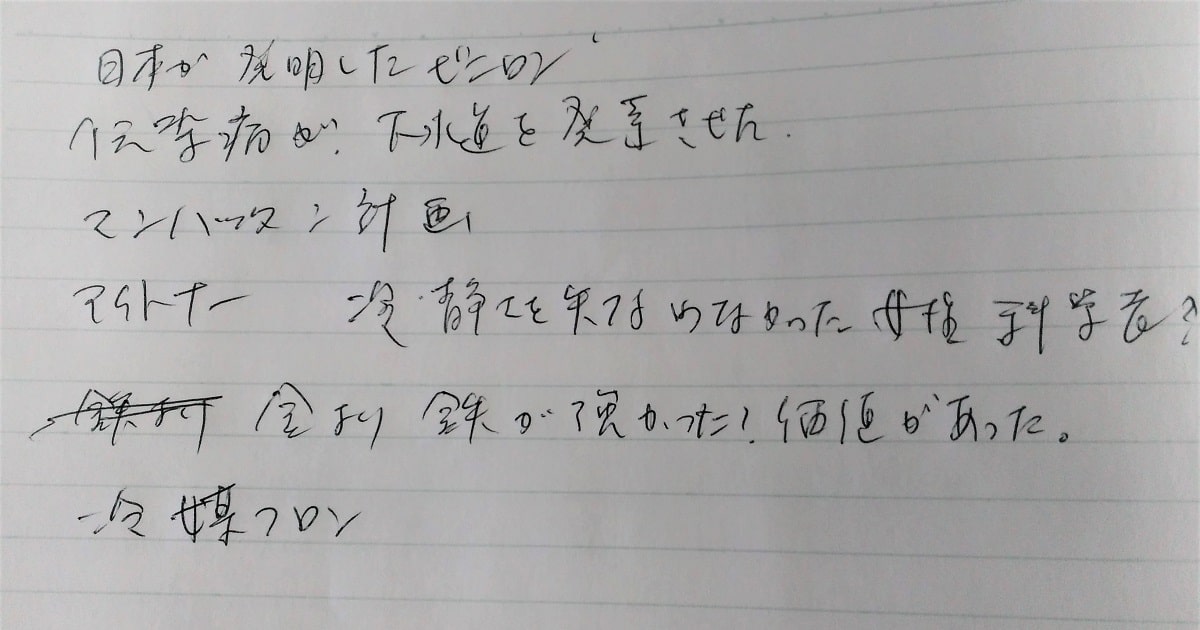 日本が発明したビニロン
伝染病が、下水道を発展させた.
マンハッタン計画
マイトナー 冷静さを失なわなかった女性科学者
鉄より 金より 鉄が強かった! 価値があった。
冷媒フロン